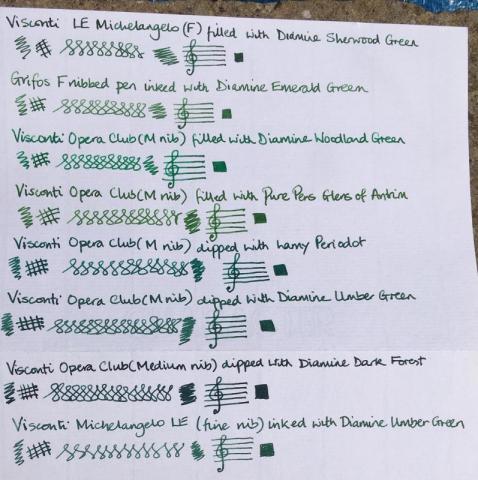 Visconti LE Michelangelo (F) filled with Diamine Sherwood Green
Grifos F nibbed pen inked with Diamine Emerald Green
Visconti Opera Club (M nib) filled with Diamine Woodland Green
Visconti Opera Club (M nib) filled with Pure Pens Glens of Antrim
Visconti Opera Club (M nib) dipped with Lamy Peridot
Visconti Opera Club (M nib) dipped with Diamine Umber Green
Visconti Opera Club (Medium nib) dipped with Diamine Dark Forest
Visconti Michelangelo LE (fine nib) inked with Diamine Umber Green